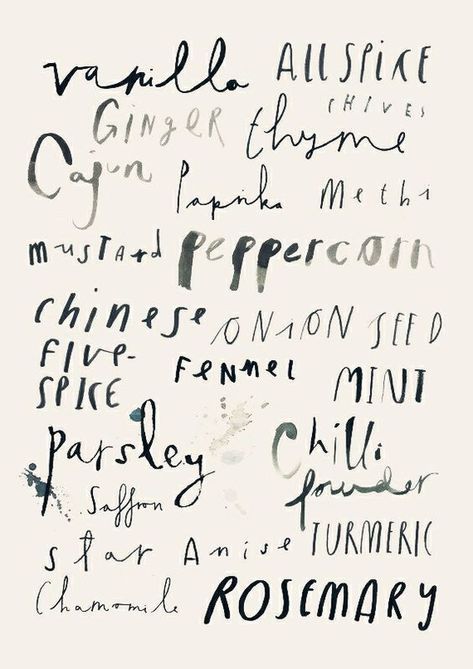 vanilla ALLSPICE
CHIVES
GINGER thyme
Cajun Paprika Methi
mustard peppercorn
chinese ONION SEED
FIVE-
SPICE FENNEL MINT
parsley Chilli
powder
Saffron
star Anise TURMERIC
Chamomile ROSEMARY